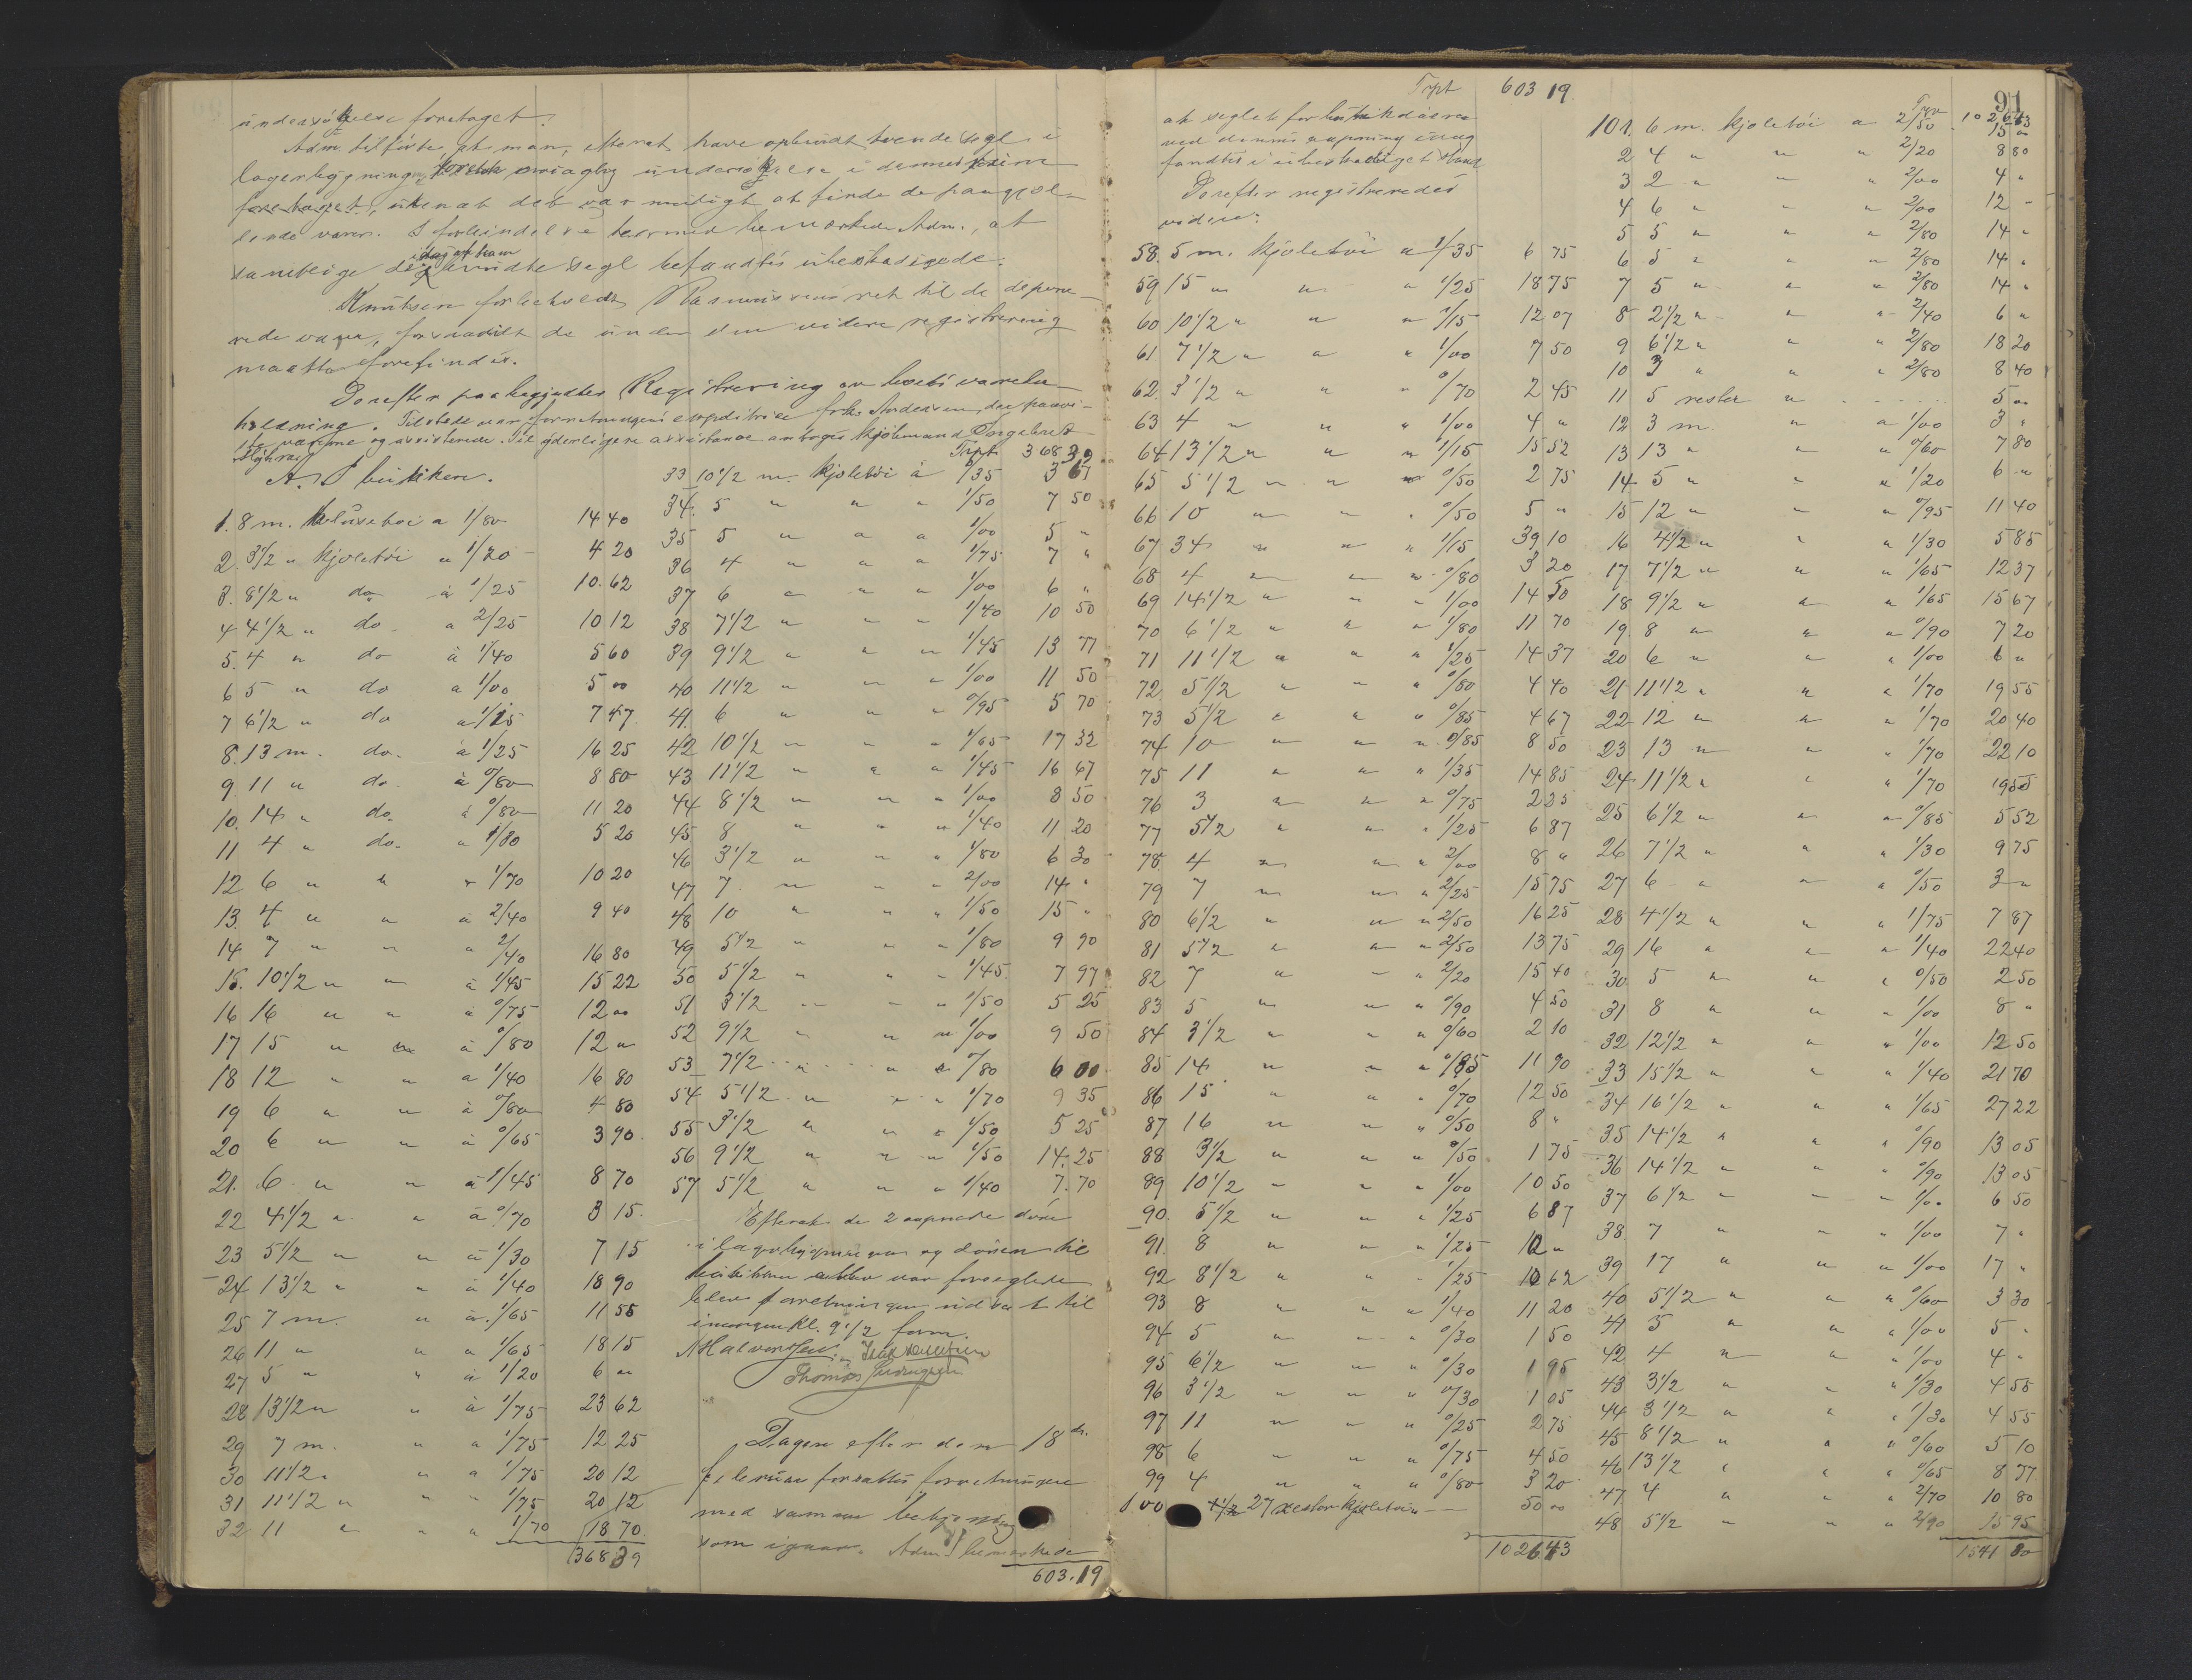 undersøgelse foretaget.
Adm. tilførte, at man, efterat have opbrudt tvende segl i
lagerbygningen, foretok undersøgelse i dennes
foretaget, uten at det var muligt at finde de paagjæl-
dende varer. I forbindelse hermed bemærkede Adm., at
samtlige de idag af ham brudte segl befandtes ubeskadigede.
Knutsen forbeholdt Rasmussens ret til de depone-
rede varer, forsaavidt de under den videre registrering
maatte forefindes.
Derefter paabegyndtes Registrering av boets varebe-
holdning. Tilstede var forretningens expeditrice frk. Andersen, der paavi-
ste varerne og assisterede. Til yderligere assistance antoges kjøbmand Engebret
A. I butiken.
1. 8 m. blusetøi a 1/80 14 40
2. 3 1/2 " kjoletøi a 1/20 4 20
3. 8 1/2 " do à 1/25 10 62
4 4 1/2 " do a 2/25 10 12
5. 4 " do à 1/40 5 60
6 5 " do a 1/00 5 00
7 6 1/2 " do a 1/15 7 47
8. 13 m. do. à 1/25 16 25
9. 11 " do. à 0/80 8 80
10. 14 " do. à 0/80 11 20
11 4 " do. a 1/30 5 20
12 6 " " " 1/70 10 20
13. 4 " " à 2/40 9 40
14 7 " " a 2/40 16 80
15. 10 1/2 " " à 1/45 15 22
16 16 " " à 0/75 12 00
17 15 " " à 0/80 12 "
18 12 " " a 1/40 16 80
19 6 " " à 0/80 4 80
20 6 " " à 0/65 3 90
21. 6 " " à 1/45 8 70
22 4 1/2 " " à 0/70 3 15.
23 5 1/2 " " à 1/30 7 15
24 13 1/2 " " à 1/40 18 90
25 7 m. " à 1/65 11 55
26 11 " " a 1/65 18 15
27 5 " " à 1/20 6 "
28 13 1/2 " " à 1/75 23 62
29 7 m. " a 1/75 12 25
30 11 1/2 " " a 1/75 20 12
31 11 1/2 " " " 1/75 20 12
32 11 " " a 1/70 18 70
368 39
Trpt 368 39
33 10 1/2 m. kjoletøi à 0/35 3 67
34. 5 " " a 1/50 7 50
35 5 " a a 1/00 5 "
36 4 " " a 1/75 7 "
37 6 " " " 1/00 6 "
38 7 1/2 " " " 1/40 10 50
39 9 1/2 " " " 1/45 13 77
40 11 1/2 " " " 1/00 11 50
41. 6 " " " 0/95 5 70
42 10 1/2 " " " 1/65 17 32
43 11 1/2 " " " 1/45 16 67
44 8 1/2 " " " 1/00 8 50
45 8 " " " 1/40 11 20
46 3 1/2 " " " 1/80 6 30
47 7 " " " 2/00 14 "
48 10 " " " 1/50 15 "
49 5 1/2 " " " 1/80 9 90
50 5 1/2 " " " 1/45 7 97
51 3 1/2 " " " 1/50 5 25
52 9 1/2 " " " 1/00 9 50
53 7 1/2 " " " 0/80 6 00
54 5 1/2 " " " 1/70 9 35
55 3 1/2 " " " 1/50 5 25
56 9 1/2 " " " 1/50 14. 25
57 5 1/2 " " " 1/40 7. 70
Efterat de 2 aapnede døre
i lagerbygningen og døren til
butikken atter var forseglede
blev forretningen udsat til
imorgen kl. 9 1/2 form.
N Halvorsen.
Thomas
Dagen efter den 18de
februar fortsattes forretningen
med samme betjening
som igaar. Adm. bemærkede
603. 19
Trpt 603 19.
at seglet for butikdøren
ved dennes aapning idag
fandtes i ubeskadiget stand
Derefter registreredes
videre:
58. 5 m. kjoletøi a 1/35 6 75
59 15 " " " 1/25 18 75
60 10 1/2 " " " 1/15 12 07
61 7 1/2 " " " 1/00 7 50
62. 3 1/2 " " " 0/70 2 45
63 4 " " " 1/00 4 "
64 13 1/2 " " " 1/15 15 52
65 5 1/2 " " " 0/50 2 75
66 10 " " " 0/50 5 "
67 34 " " " 1/15 39 10
68 4 " " " 0/80 3 20
69 14 1/2 " " " 1/00 14 50
70 6 1/2 " " " 1/80 11 70
71 11 1/2 " " " 1/25 14 37
72 5 1/2 " " " 0/80 4 40
73 5 1/2 " " " 0/85 4 67
74 10 " " " 0/85 8 50
75 11 " " " 1/35 14 85
76 3 " " " 0/75 2 25
77 5 1/2 " " " 1/25 6 87
78 4 " " " 2/00 8 "
79 7 " " " 2/25 15 75
80 6 1/2 " " " 2/50 16 25
81 5 1/2 " " " 2/50 13 75
82 7 " " " 2/20 15 40
83 5 " " " 0/90 4 50
84 3 1/2 " " " 0/60 2 10
85 14 " " " 0/85 11 90
86 15 " " " 0/70 12 50
87 16 " " " 0/50 8 "
88 3 1/2 " " " 0/50 1 75
89 10 1/2 " " " 1/00 10 50
90. 5 1/2 " " " 1/25 6 87
91. 8 " " " 1/25 10 "
92 8 1/2 " " " 1/25 10 62
93 8 " " " 1/40 11 20
94 5 " " " 0/30 1 50
95 6 1/2 " " " 0/30 1 95
96 3 1/2 " " " 0/30 1 05
97 11 " " " 0/25 2 75
98 6 " " " 0/75 4 50
99 4 " " " 0/80 3 20
100 27 rester kjoletøi 50 00
1026 43
91
Trpt 1026 43
101. 6 m. kjoletøi a 2/50 15 "
2 4 " " " 2/20 8 80
3 2 " " " 2/00 4 "
4 6 " " " 2/00 12 "
5 5 " " " 2/80 14 "
6 5 " " " 2/80 14 "
7 5 " " " 2/80 14 "
8 2 1/2 " " " 2/40 6 "
9 6 1/2 " " " 2/80 18 20
10 3 " " " 2/80 8 40
11 5 rester " 5 "
12 3 m. " a 1/00 3 "
13 13 " " " 0/60 7 80
14 5 " " " 1/20 6 "
15 12 " " " 0/95 11 40
16 4 1/2 " " " 1/30 5 85
17 7 1/2 " " " 1/65 12 37
18 9 1/2 " " " 1/65 15 67
19. 8 " " " 0/90 7 20
20 6 " " " 1/00 6 "
21 11 1/2 " " " 1/70 19 55
22 12 " " " 1/70 20 40
23 13 " " " 1/70 22 10
24 11 1/2 " " " 1/70 19 55
25 6 1/2 " " " 0/85 5 52
26 7 1/2 " " " 1/30 9 75
27 6 " " " 0/50 3 "
28 4 1/2 " " " 1/75 7 87
29 16 " " " 1/40 22 40
30. 5 " " " 0/50 2 50
31 8 " " " 1/00 8 "
32 12 1/2 " " " 1/00 12 50
33 15 1/2 " " " 1/40 21 70
34 16 1/2 " " " 1/65 27 22
35 14 1/2 " " " 0/90 13 05
36 14 1/2 " " " 0/90 13 05
37 6 1/2 " " " 1/00 6 50
38. 7 " " " 1/00 7 "
39 17 " " " 1/00 17 "
40 5 1/2 " " " 0/60 3 30
41 5 " " " 1/00 5 "
42 4 " " " 1/00 4 "
43 3 1/2 " " " 1/30 4 55
44 3 1/2 " " " 1/30 4 55
45 8 1/2 " " " 0/60 5 10
46 13 1/2 " " " 0/65 8 77
47 4 " " " 2/70 10 80
48 5 1/2 " " " 2/90 15 95
1541 80